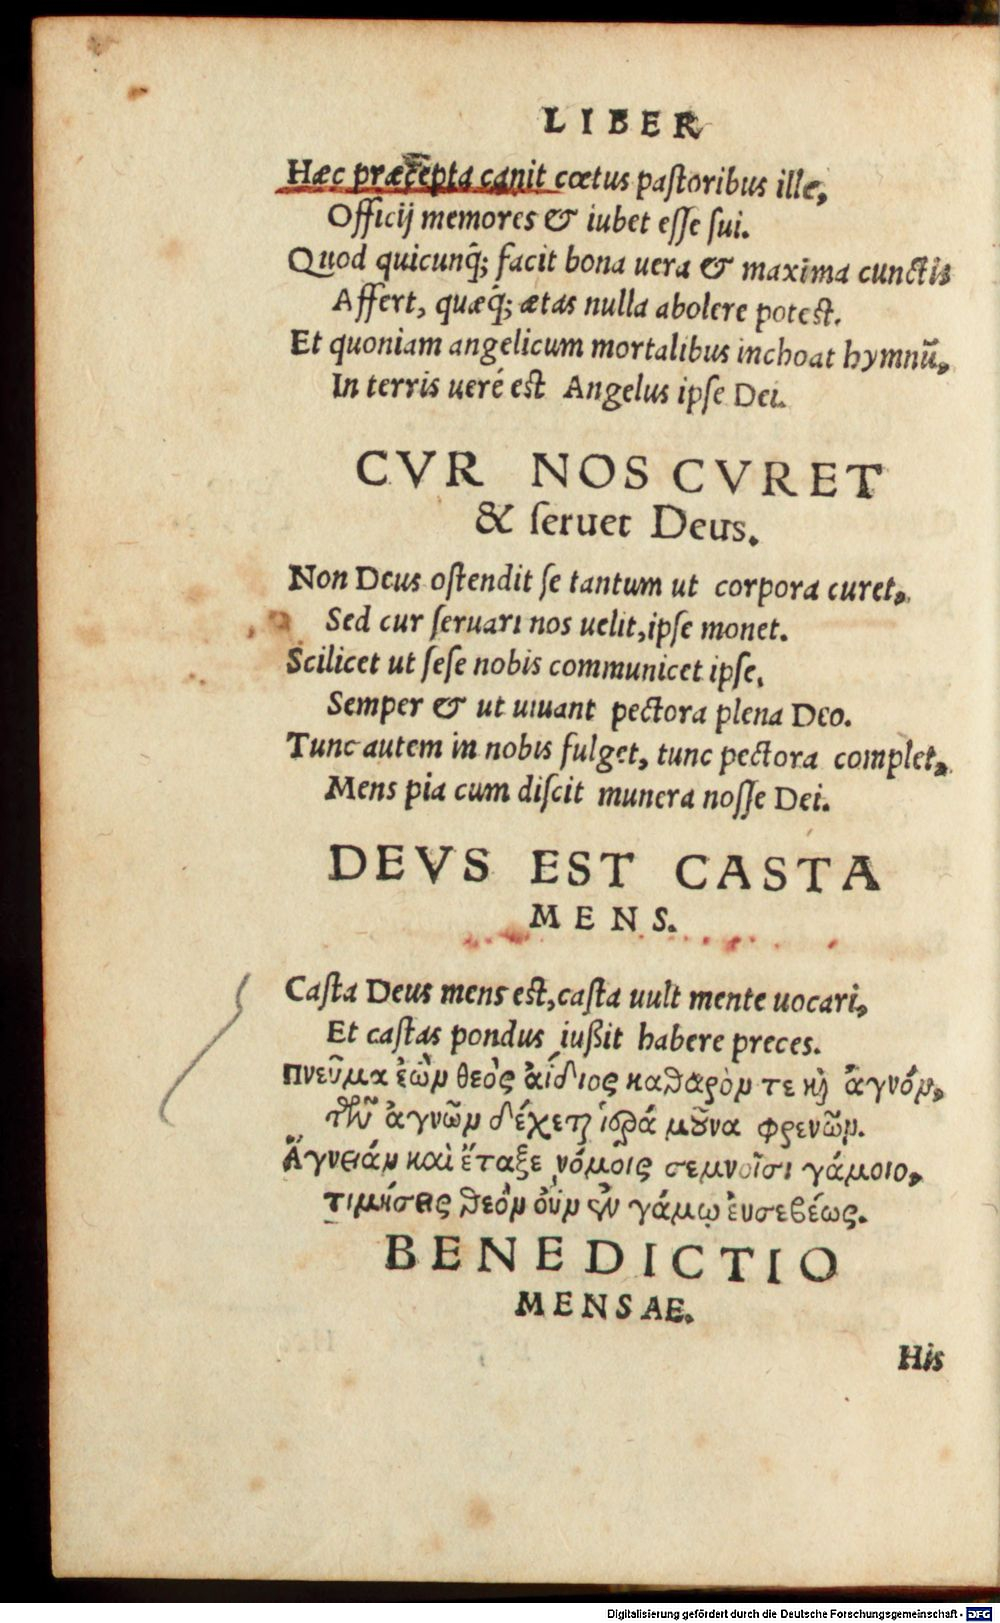 LIBER
Hæc præcepta canit cœtus paſtoribus ille,
Officij memores & iubet eſſe ſui.
Quod quicunq́; facit bona uera & maxima cunctis
Affert, quæq́; ætas nulla abolere potest.
Et quoniam angelicum mortalibus inchoat hymnũ,
In terris ueré est Angelus ipſe Dei.
CVR NOS CVRET
& ſeruet Deus.
Non Deus oſtendit ſe tantum ut corpora curet,
Sed cur ſeruari nos uelit, ipſe monet.
Scilicet ut ſeſe nobis communicet ipſe,
Semper & ut uiuant pectora plena Deo.
Tunc autem in nobis fulget, tunc pectora complet,
Mens pia cum diſcit munera noſſe Dei.
DEVS EST CASTA
MENS.
Caſta Deus mens est, caſta uult mente uocari,
Et caſtas pondus iußit habere preces.
πνεῦμα ἐὼν θεὸς ἀΐδιος καθαρὸν τε καὶ ἁγνόν,
τῶν ἁγνῶν δέχεται ἱερά μοῦνα φρενῶν.
Ἁγνείαν καὶ ἔταξε νόμοις σεμνοῖσι γάμοιο,
τιμήσεις θεὸν οὖν ἐν γάμῳ ἐυσεβέως.
BENEDICTIO
MENSAE.
His
Digitalisierung gefördert durch die Deutsche Forschungsgemeinschaft - DFG